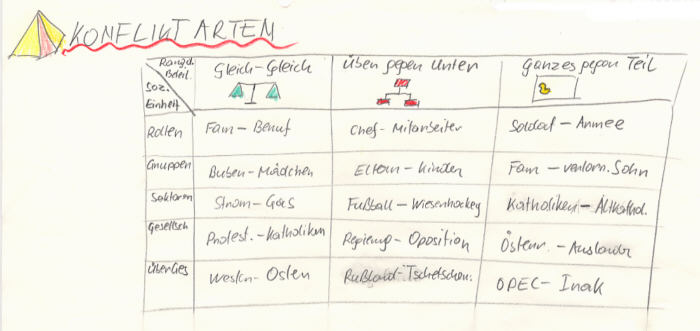 KONFLIKTARTEN
Rang d. Beteil. Gleich-Gleich Oben gegen Unten Ganzes gegen Teil
Soz. Einheit
Rollen Fam - Beruf Chef - Mitarbeiter Soldat - Armee
Gruppen Buben - Mädchen Eltern - Kinder Fam - verlorn. Sohn
Sektoren Strom - Gas Fußball - Wiesenhockey Katholiken - Altkathol.
Gesellsch Protest. - Katholiken Regierung - Opposition Österr. - Ausländer
ÜberGes Westen - Osten Rußland - Tschetschen. OPEC - Irak